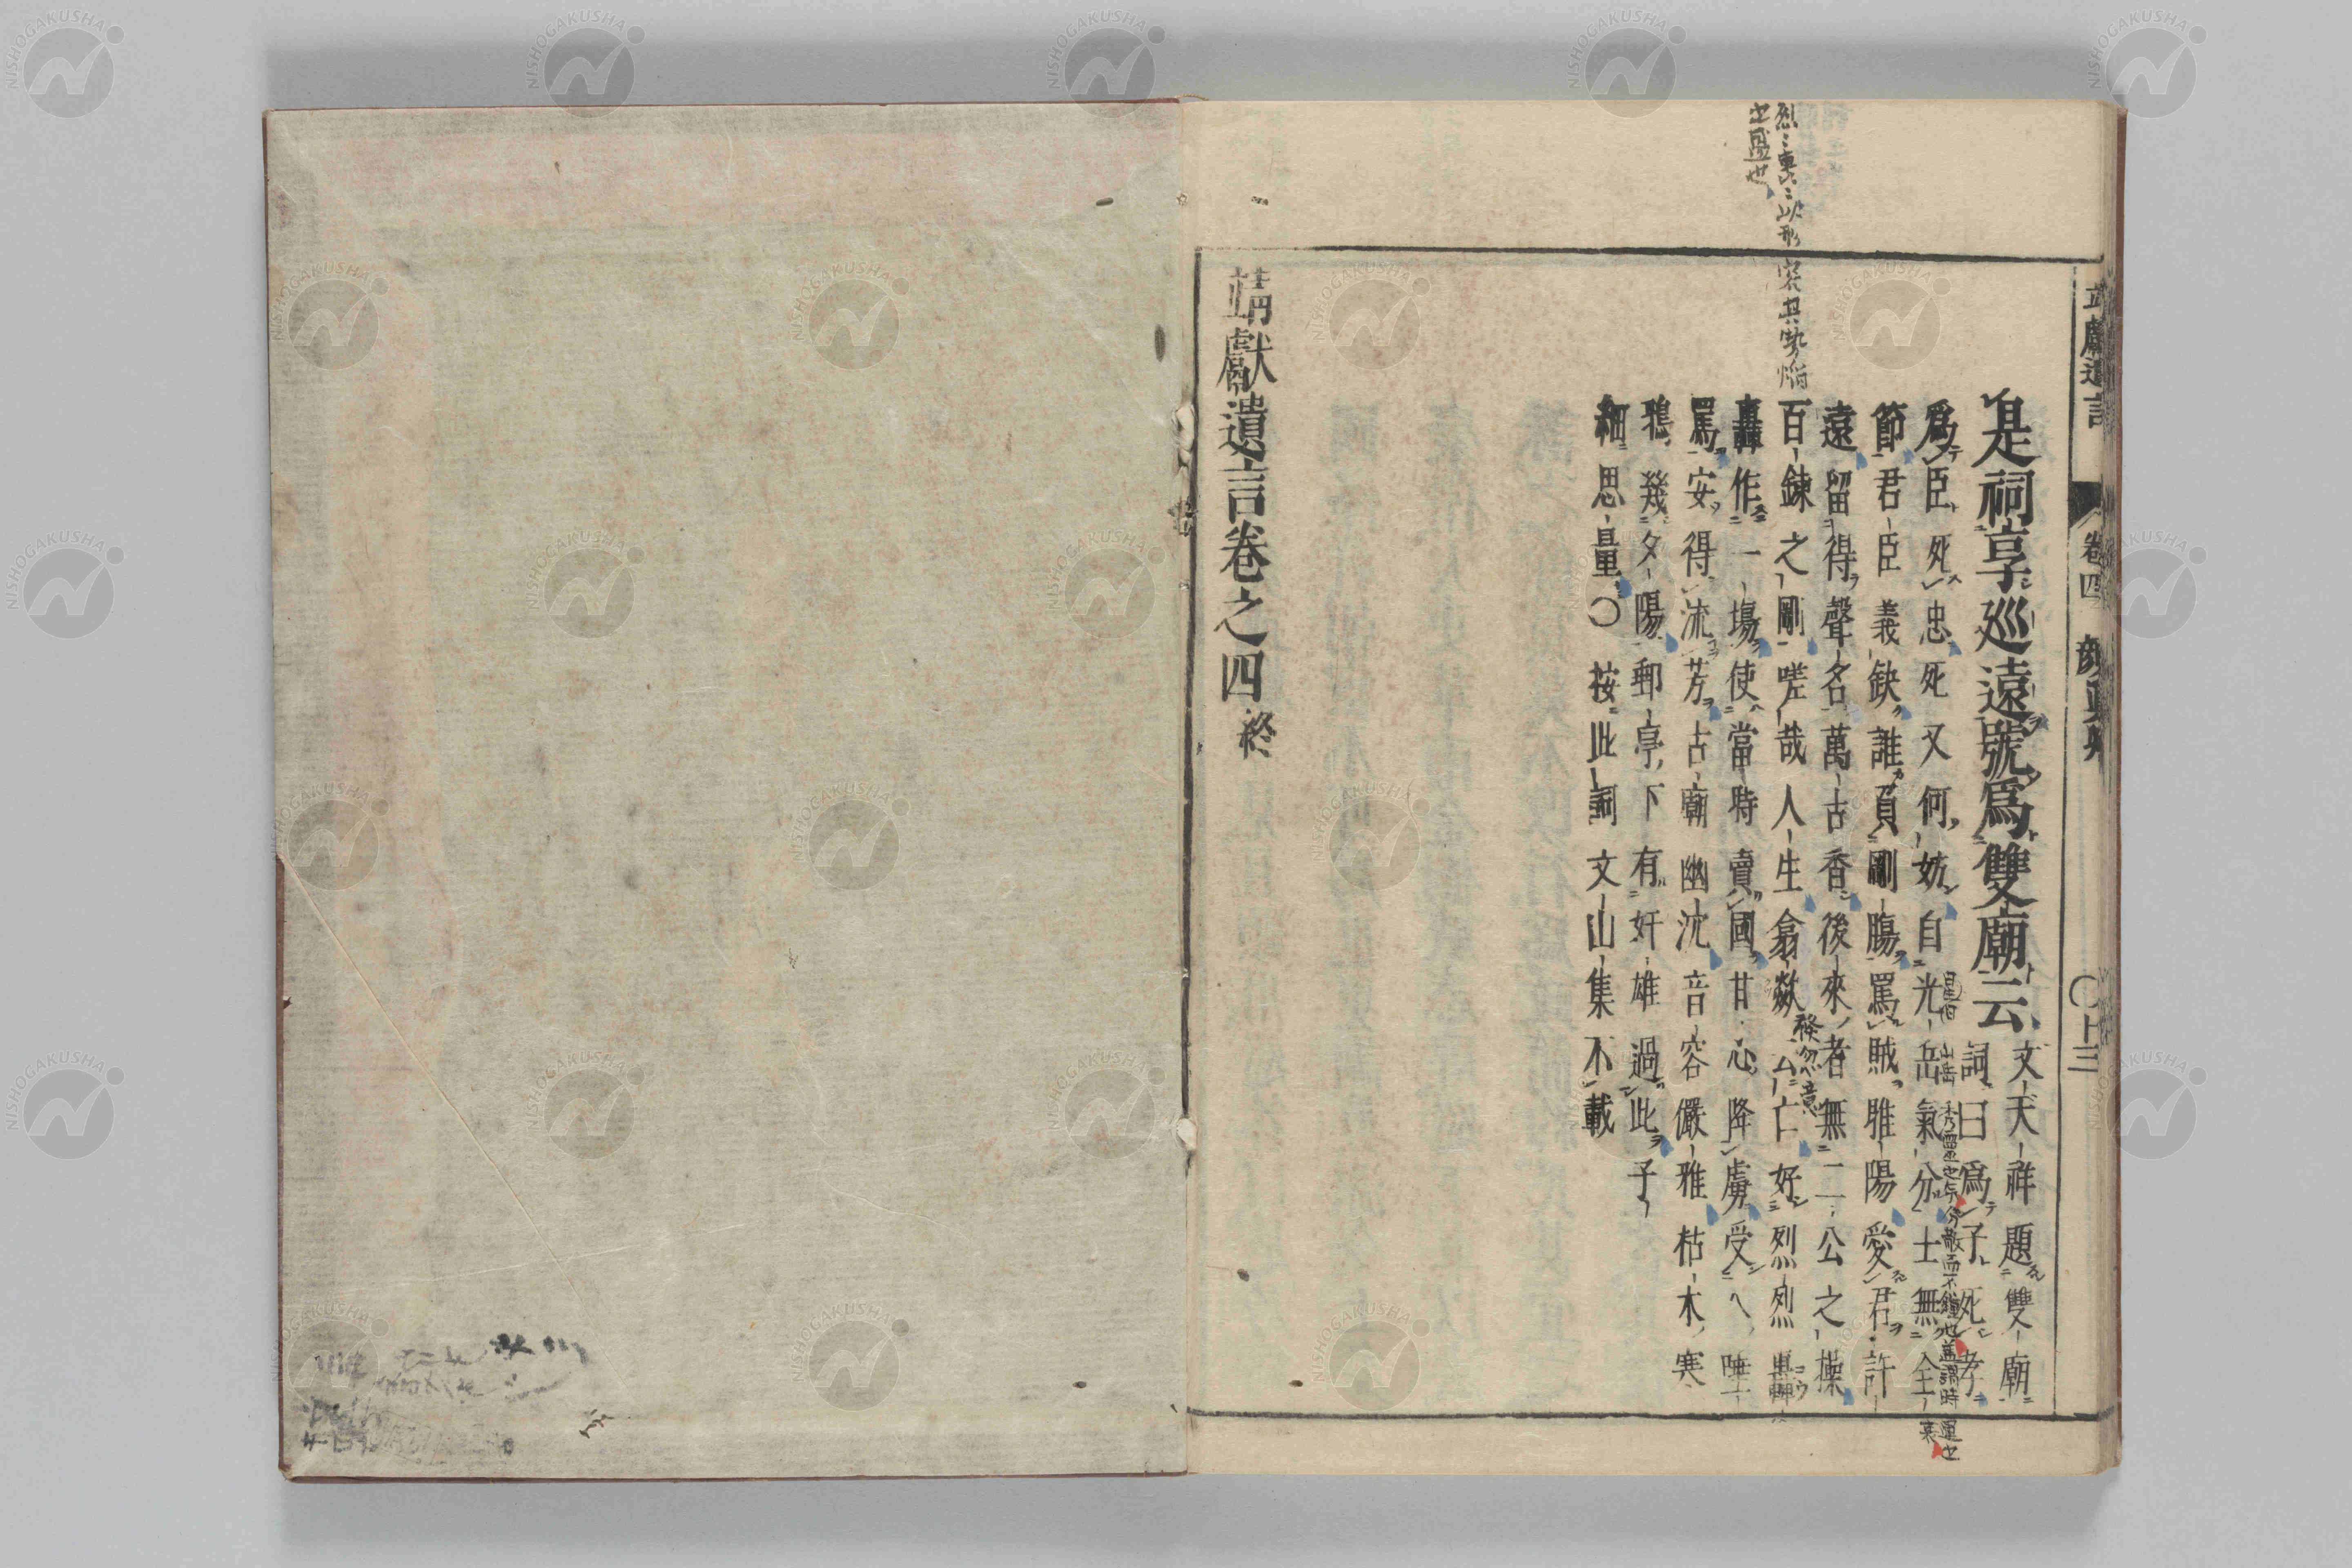 靖獻遺言 卷四 顏眞卿 〇十三
是祠享巡遠號爲雙廟云
文天祥題雙廟
詞曰爲子死孝
爲臣死忠死又何妨自光岳氣分士無全
節君臣義缺誰負剛腸罵賊睢陽愛君許
遠留得聲名萬古香後來者無二公之操
百鍊之剛嗟哉人生翕歘云亡好烈烈轟
轟作一場使當時賣國甘心降虜受人唾
罵安得流芳古廟幽沈音容儼雅枯木寒
鴉幾夕陽郵亭下有奸雄過此子
細思量〇按此詞文山集不載
烈〻轟〻以形容其勢焰
之盛也
靖獻遺言卷之四終
NISHOGAKUSHA